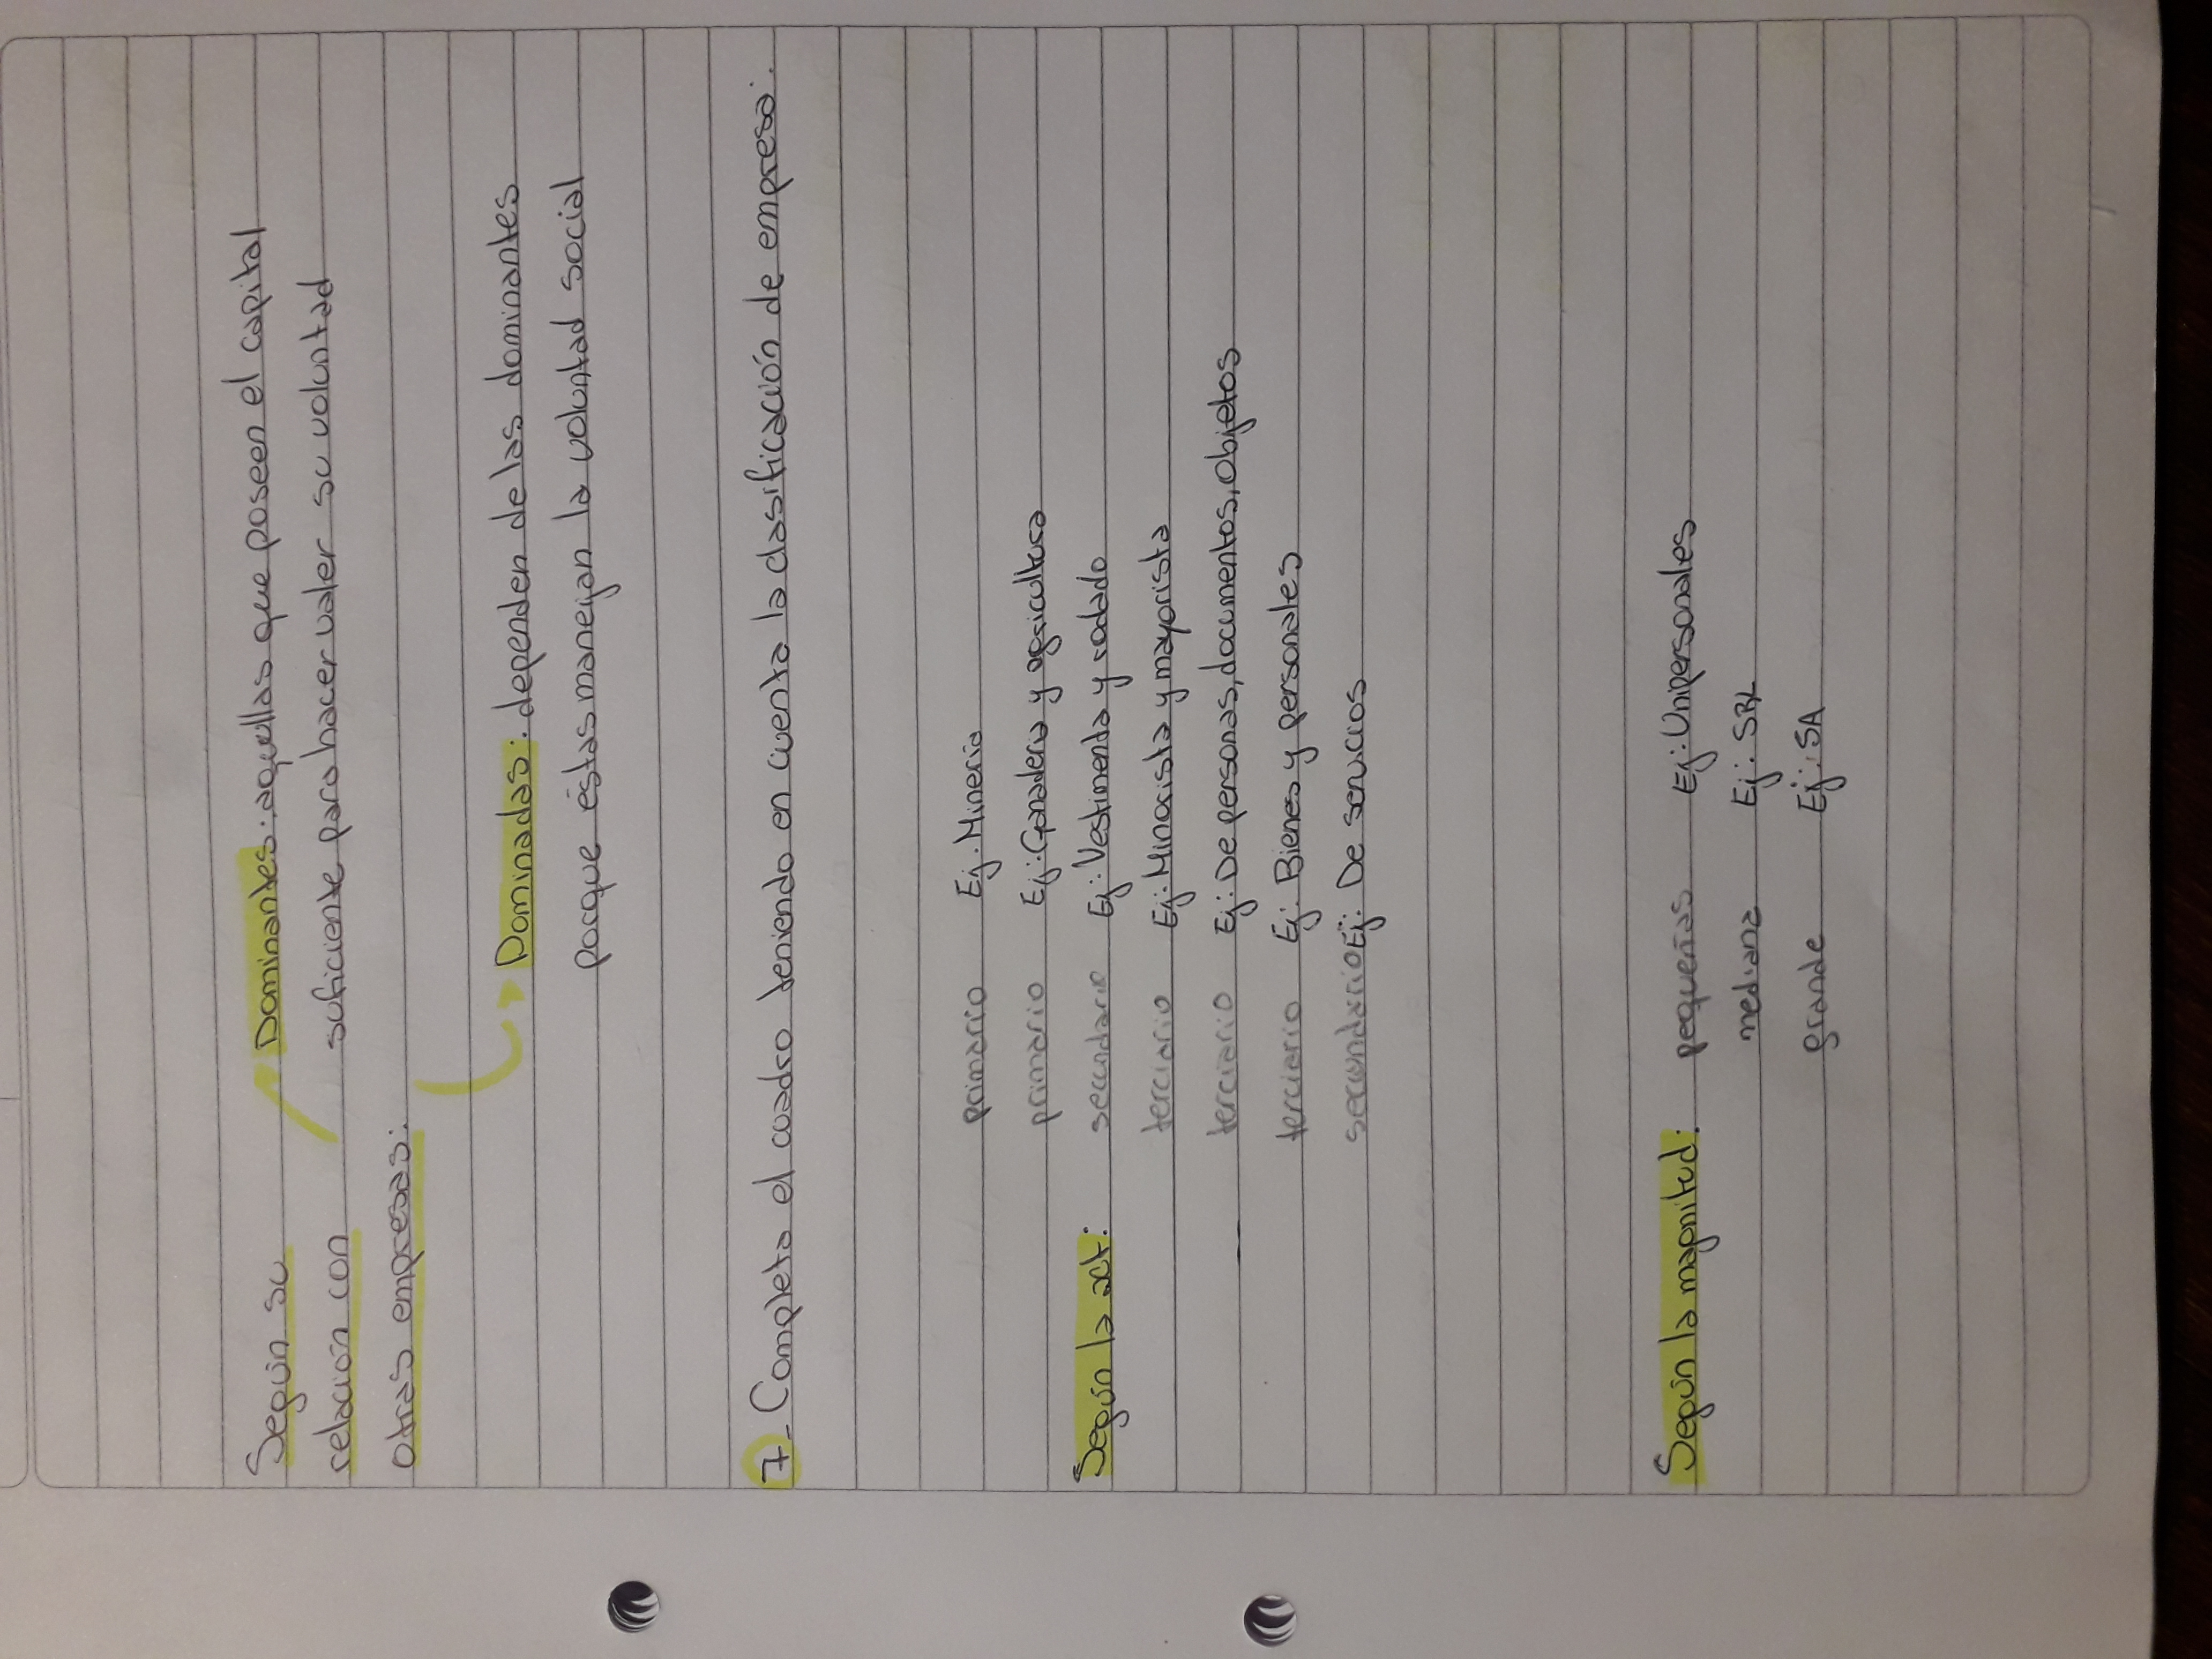 Según su
relación con
otras empresas:
Dominantes: aquellas que poseen el capital
suficiente para hacer valer su voluntad
Dominadas: dependen de las dominantes
porque éstas manejan la voluntad social
7- Completa el cuadro teniendo en cuenta la clasificación de empresa:
Según la act:
primario Ej: Mineria
primario Ej: Ganaderia y agricultura
secundario Ej: Vestimenta y rodado
terciario Ej: Minorista y mayorista
terciario Ej: De personas, documentos, objetos
terciario Ej: Bienes y personales
secundario Ej: De servicios
Según la magnitud:
pequeñas Ej: Unipersonales
mediana Ej: SRL
grande Ej: SA